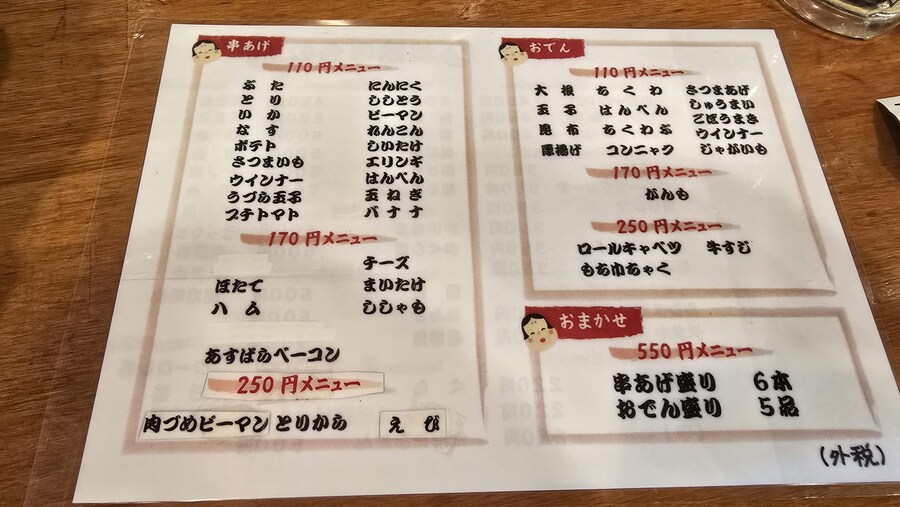 串あげ
110円メニュー
ぶた にんにく
とり ししとう
いか ピーマン
なす れんこん
ポテト しいたけ
さつまいも エリンギ
ウインナー はんぺん
うづら玉子 玉ねぎ
プチトマト バナナ
170円メニュー
チーズ
ほたて まいたけ
ハム ししゃも
あすぱらベーコン
250円メニュー
肉づめピーマン とりから えび
おでん
110円メニュー
大根 ちくわ さつまあげ
玉子 はんぺん しゅうまい
昆布 ちくわぶ ごぼうまき
厚揚げ コンニャク ウインナー
じゃがいも
170円メニュー
がんも
250円メニュー
ロールキャベツ 牛すじ
もち巾ちゃく
おまかせ
550円メニュー
串あげ盛り 6本
おでん盛り 5品
(外税)